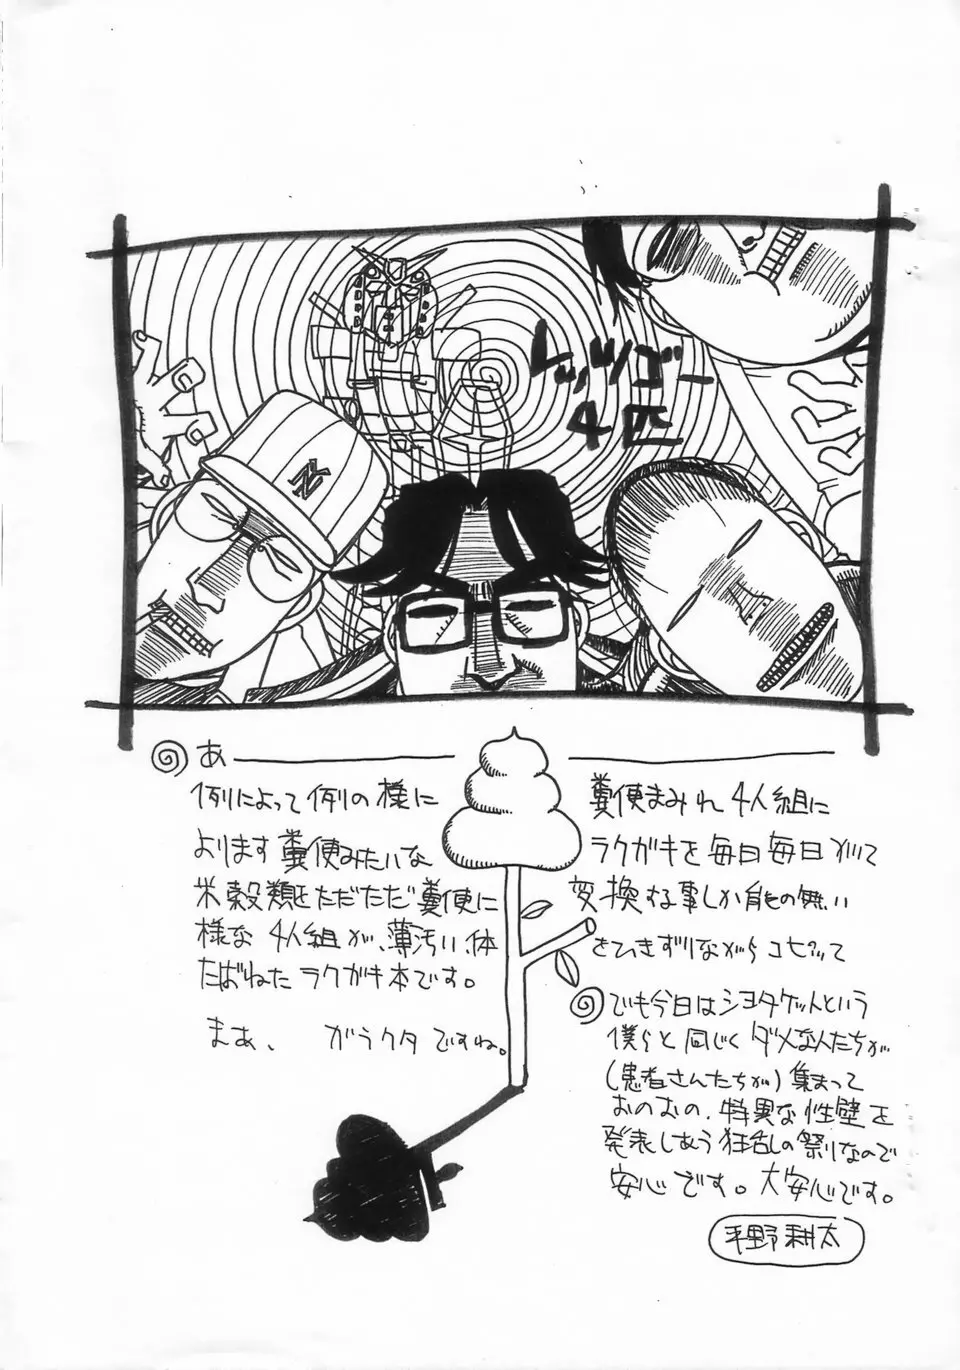 レッツゴー
4匹
NY
あ
例によって例の様に 糞便まみれ4人組に
よります糞便みたいな ラクガキを毎日毎日
米穀類をただただ糞便に 変換する事しか能の無い
様な4人組が、薄汚い体 をひきずりながらコピって
たばねたラクガキ本です。
まあ、 ガラクタですね。
でも今日はショタケットという
僕らと同じくダメな人たちが
(患者さんたちが)集まって
おのおの、特異な性壁を
発表しあう狂乱の祭りなので
安心です。大安心です。
平野耕太